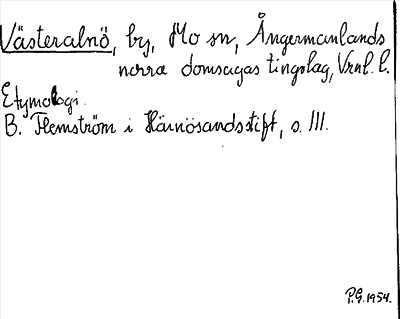 Västeralnö, by, Mo sn, Ångermanlands
norra domsagas tingslag, Vrnl. l.
Etymologi.
B. Flemström i Härnösandsstift, s. 111.
P.G. 1954.